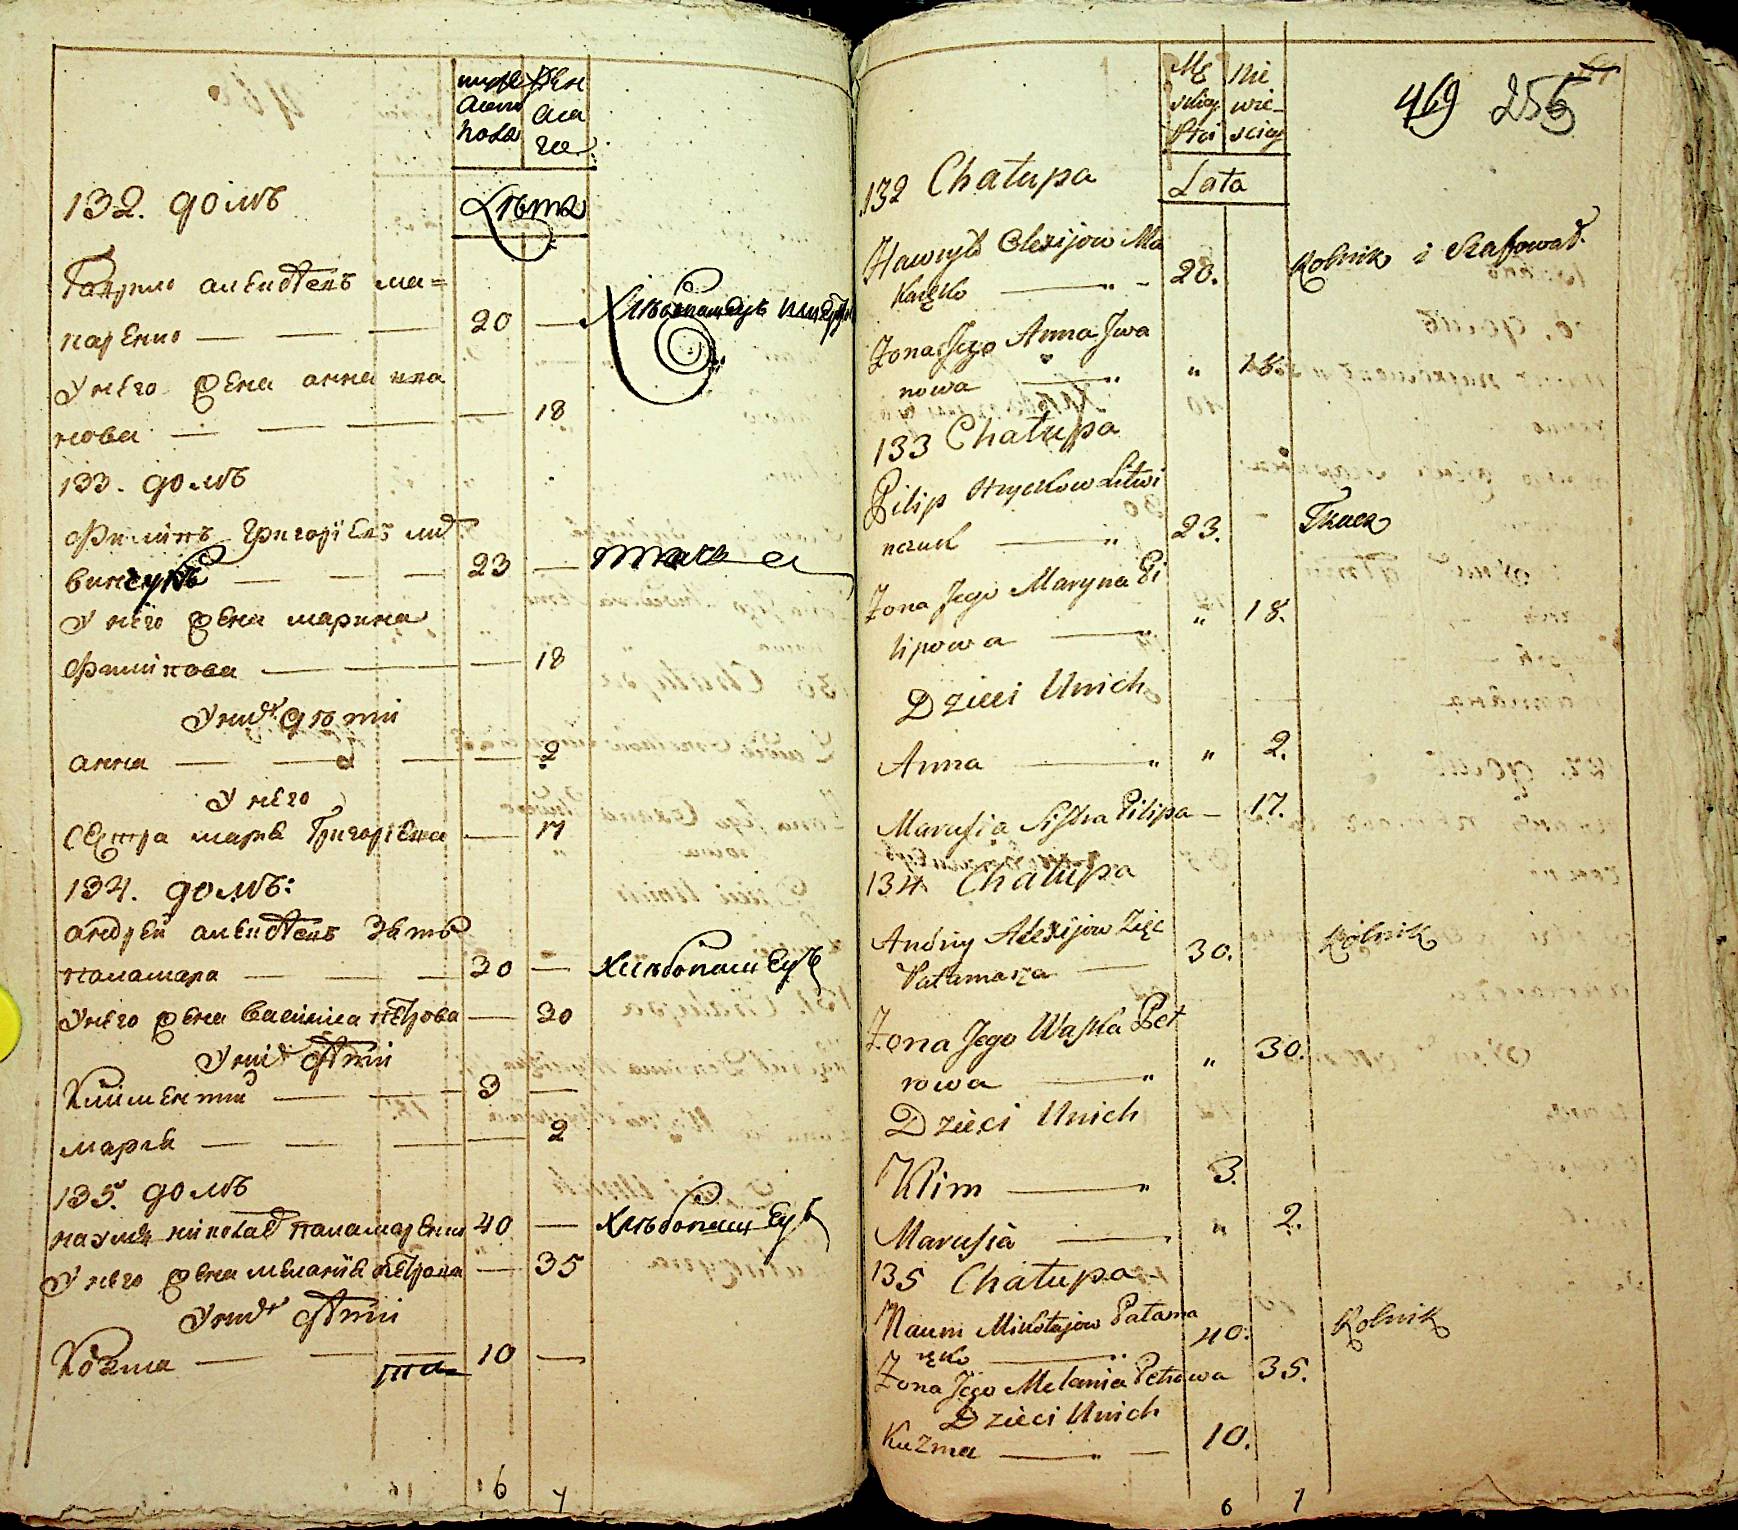 132. домъ
Лѣта
Гаврило алексѣевъ ма=
каренко — — — 20 —
У него жена анна ива
нова — — — — 18
133. домъ
Филипъ Григорiевъ лит
винчукъ — — — 23 — ткачъ
У него жена марина
Филипова — — — 18
У них дѣти
анна — — — — 2
У него
сестра марiя Григорiева — 17
134. домъ:
андрей алексѣевъ Зять
паламара — — — 30 — хлѣбопашецъ
У него жена василиса петрова — 30
У них дѣти
Климентий — — 3 —
марiя — — — — 2
135. домъ
наумъ николаев паламаренко 40 — хлѣбопашецъ
У него жена меланiя петрова — 35
У них дѣти
Козма — — — 10 —
6 7
469 256
Mę Nie
skiey wie-
Płci sciey
132 Chałupa
Lata
Hawryło Olexijow Ma
karęko — „ - 20. Rolnik i
Zona Jego Anna Jwa
nowa — „ „ 18.
133 Chałupa
Pilip Hryckow Litwi
nczuk — „ 23. Tkacz
Zona Jego Maryna Pi
lipowa — „ „ 18.
Dzieci Unich
Anna — „ „ 2.
Marusia Sistra Pilipa — 17.
134 Chałupa
Andriy Alexijow Zięc
Pałamarza — 30. Rolnik
Zona Jego Waska Pet
rowa — „ „ 30.
Dzieci Unich
Klim — „ 3.
Marusia — „ 2.
135 Chałupa
Naum Mikołajow Pałama
ręko — „ 40. Rolnik
Zona Jego Melania Petrowa 35.
Dzieci Unich
Kuzma — „ — 10.
6 7